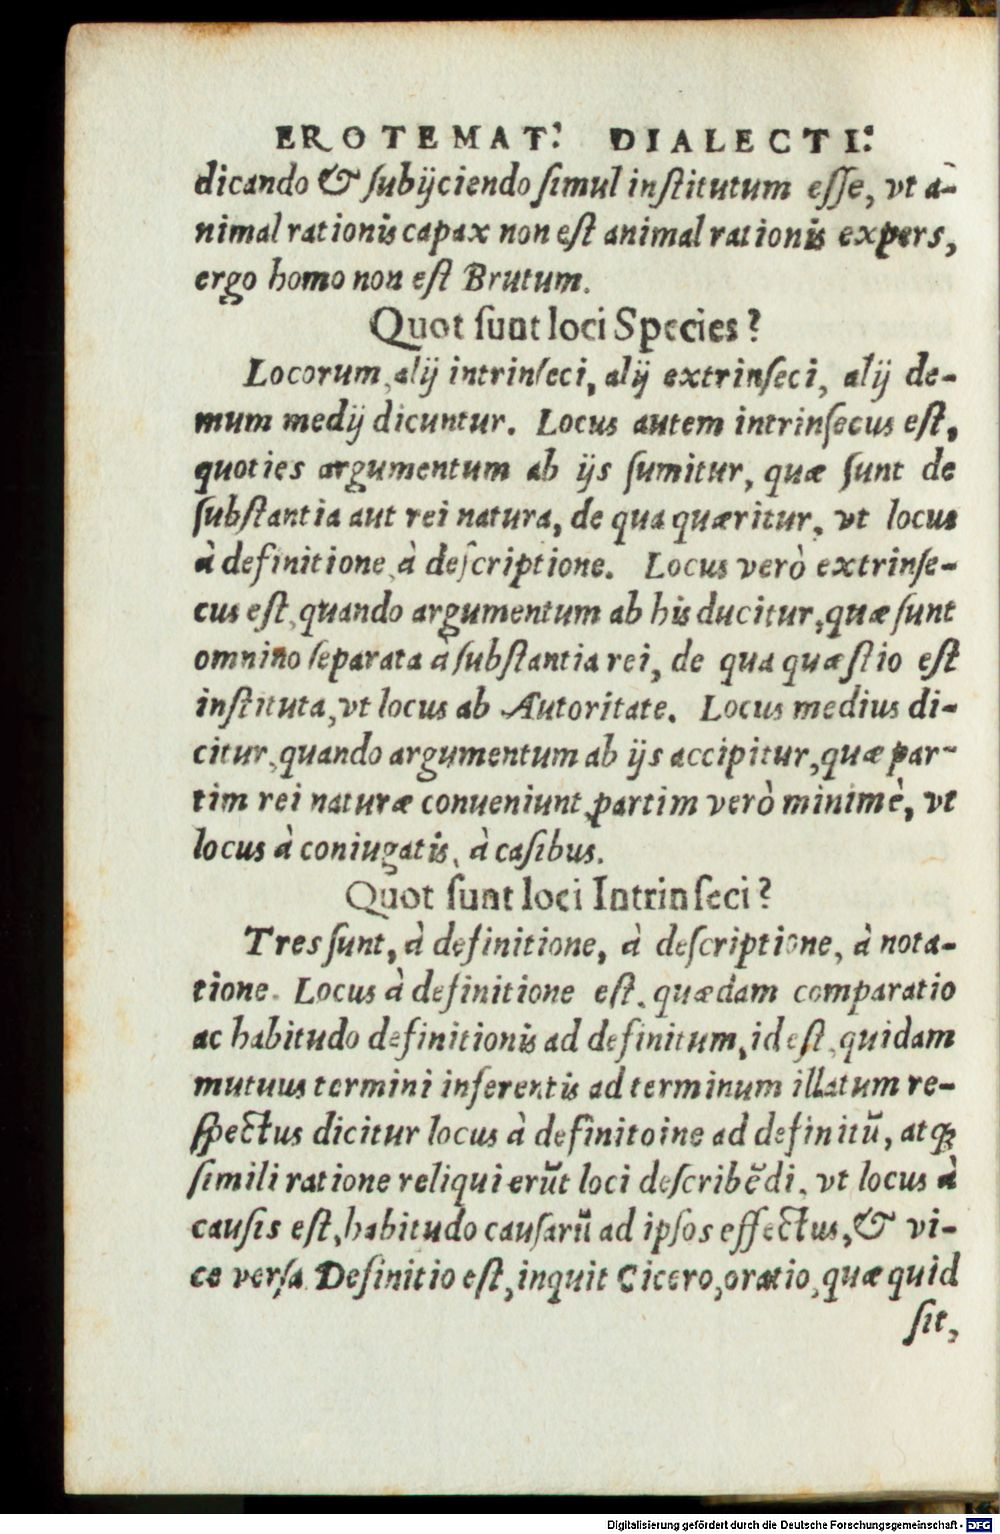 EROTEMAT: DIALECTI:
dicando & ſubijciendo ſimul inſtitutum eſſe, vt à-
nimal rationis capax non eſt animal rationis expers,
ergo homo non eſt Brutum.
Quot ſunt loci Species?
Locorum, alij intrinſeci, alij extrinſeci, alij de-
mum medij dicuntur. Locus autem intrinſecus eſt,
quoties argumentum ab ijs ſumitur, quæ ſunt de
ſubſtantia aut rei natura, de qua quæritur, vt locus
à definitione, à deſcriptione. Locus verò extrinſe-
cus eſt, quando argumentum ab his ducitur, quæ ſunt
omnino ſeparata à ſubſtantia rei, de qua quæſtio eſt
inſtituta, vt locus ab Autoritate. Locus medius di-
citur, quando argumentum ab ijs accipitur, quæ par-
tim rei naturæ conueniunt, partim verò minimè, vt
locus à coniugatis, à caſibus.
Quot ſunt loci Intrinſeci?
Tres ſunt, à definitione, à deſcriptione, à nota-
tione. Locus à definitione eſt, quædam comparatio
ac habitudo definitionis ad definitum, id eſt, quidam
mutuus termini inferentis ad terminum illatum re-
ſpectus dicitur locus à definitoine ad definitū, atq;
ſimili ratione reliqui erūt loci deſcribēdi, vt locus à
cauſis eſt, habitudo cauſarū ad ipſos effectus, & vi-
ce verſa. Definitio eſt, inquit Cicero, oratio, quæ quid
ſit,
Digitalisierung gefördert durch die Deutsche Forschungsgemeinschaft - DFG